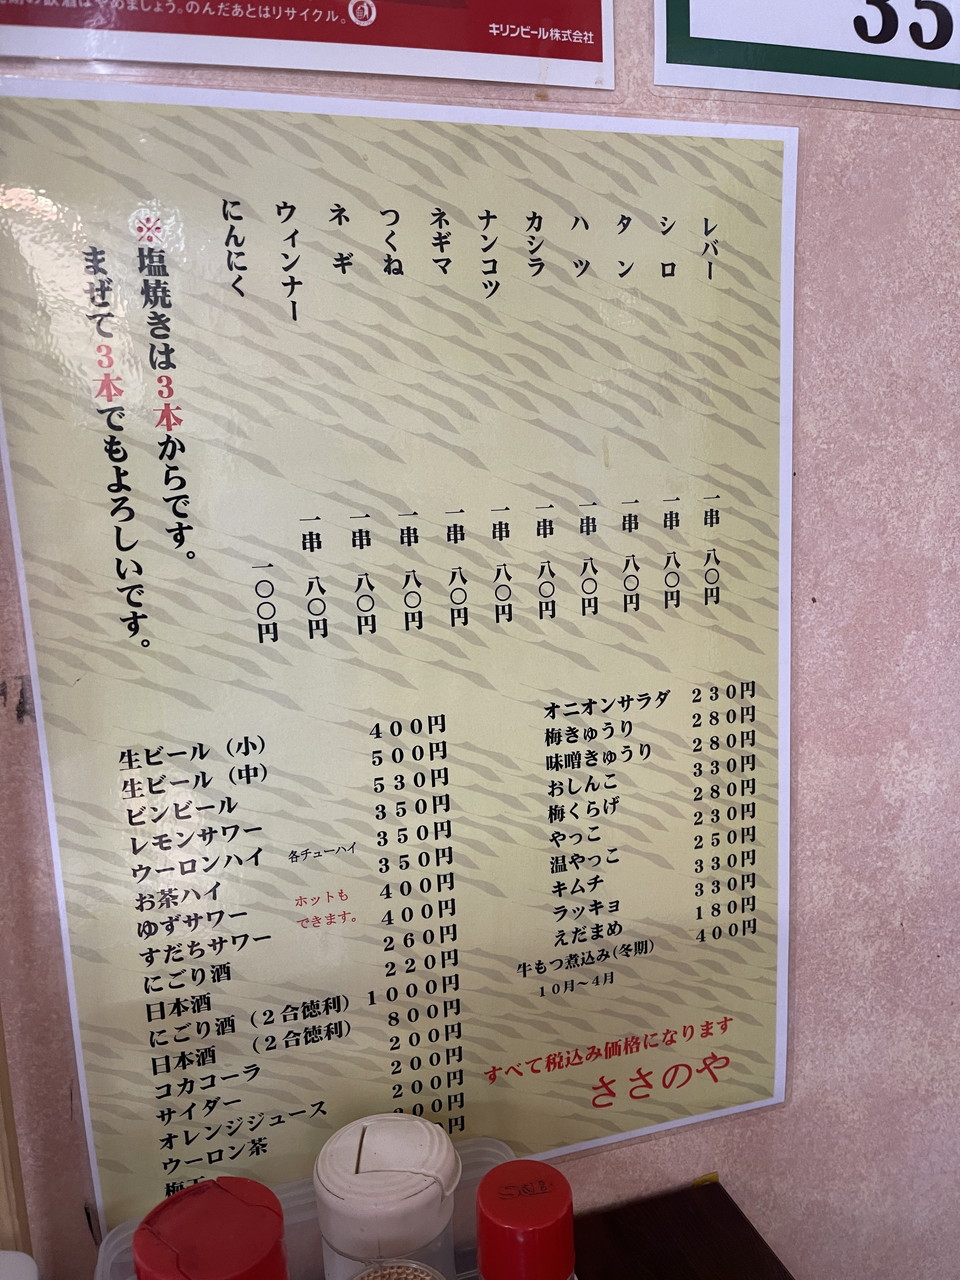 飲酒はやめましょう。のんだあとはリサイクル。
キリンビール株式会社
35
レバー 一串 八〇円
シロ 一串 八〇円
タン 一串 八〇円
ハツ 一串 八〇円
カシラ 一串 八〇円
ナンコツ 一串 八〇円
ネギマ 一串 八〇円
つくね 一串 八〇円
ネギ 一串 八〇円
ウィンナー 一串 八〇円
にんにく 一〇〇円
※塩焼きは3本からです。
まぜて3本でもよろしいです。
生ビール（小） 400円
生ビール（中） 500円
ビンビール 530円
レモンサワー 350円
ウーロンハイ 各チューハイ 350円
お茶ハイ 350円
ゆずサワー ホットも 400円
すだちサワー できます。 400円
にごり酒 260円
日本酒 220円
にごり酒（２合徳利） 1000円
日本酒（２合徳利） 800円
コカコーラ 200円
サイダー 200円
オレンジジュース 200円
ウーロン茶 200円
梅干 0円
オニオンサラダ 230円
梅きゅうり 280円
味噌きゅうり 280円
おしんこ 330円
梅くらげ 280円
やっこ 230円
温やっこ 250円
キムチ 330円
ラッキョ 330円
えだまめ 180円
牛もつ煮込み(冬期) 400円
10月～4月
すべて税込み価格になります
ささのや